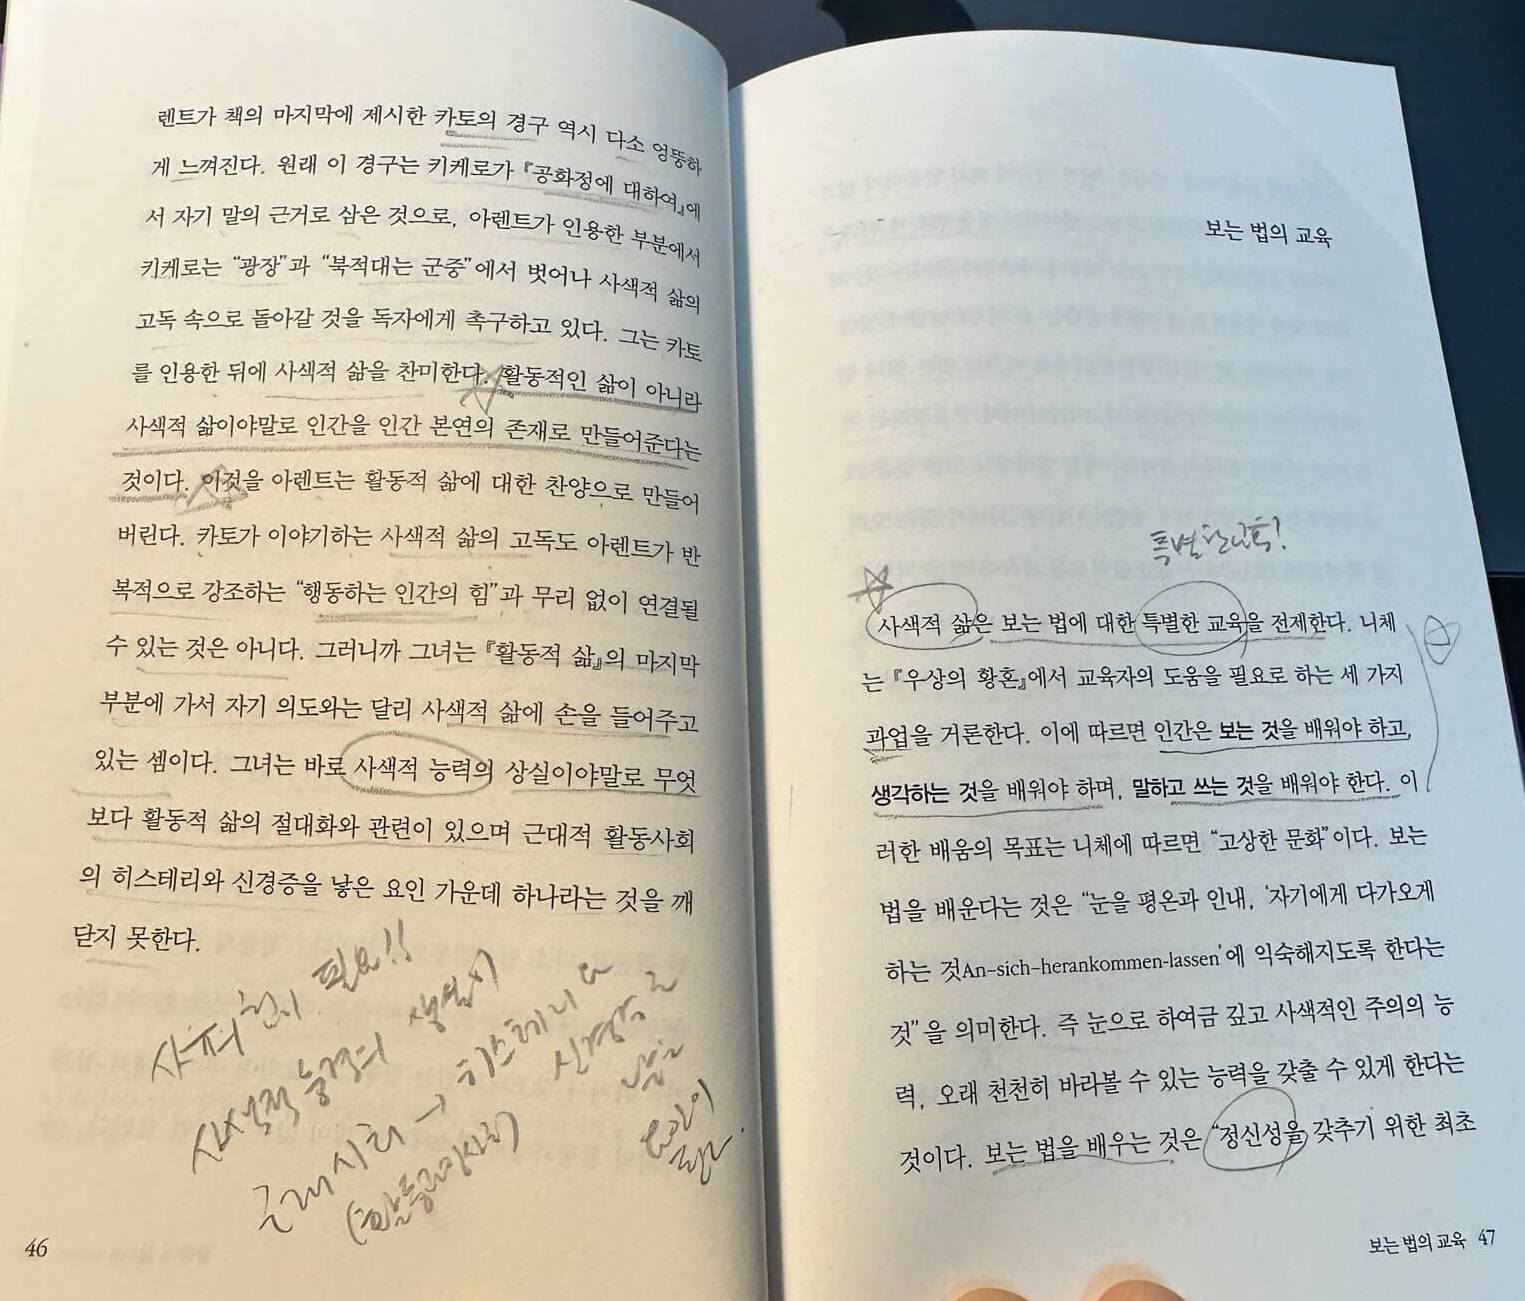 렌트가 책의 마지막에 제시한 카토의 경구 역시 다소 엉뚱하
게 느껴진다. 원래 이 경구는 키케로가 『공화정에 대하여』에
서 자기 말의 근거로 삼은 것으로, 아렌트가 인용한 부분에서
키케로는 “광장”과 “북적대는 군중”에서 벗어나 사색적 삶의
고독 속으로 돌아갈 것을 독자에게 촉구하고 있다. 그는 카토
를 인용한 뒤에 사색적 삶을 찬미한다. 활동적인 삶이 아니라
사색적 삶이야말로 인간을 인간 본연의 존재로 만들어준다는
것이다. 이것을 아렌트는 활동적 삶에 대한 찬양으로 만들어
버린다. 카토가 이야기하는 사색적 삶의 고독도 아렌트가 반
복적으로 강조하는 “행동하는 인간의 힘”과 무리 없이 연결될
수 있는 것은 아니다. 그러니까 그녀는 『활동적 삶』의 마지막
부분에 가서 자기 의도와는 달리 사색적 삶에 손을 들어주고
있는 셈이다. 그녀는 바로 사색적 능력의 상실이야말로 무엇
보다 활동적 삶의 절대화와 관련이 있으며 근대적 활동사회
의 히스테리와 신경증을 낳은 요인 가운데 하나라는 것을 깨
닫지 못한다.
필요!!
사색적 능력의
히스테리나
46
보는 법의 교육
특별한 교육!
사색적 삶은 보는 법에 대한 특별한 교육을 전제한다. 니체
는 『우상의 황혼』에서 교육자의 도움을 필요로 하는 세 가지
과업을 거론한다. 이에 따르면 인간은 보는 것을 배워야 하고,
생각하는 것을 배워야 하며, 말하고 쓰는 것을 배워야 한다. 이
러한 배움의 목표는 니체에 따르면 “고상한 문화”이다. 보는
법을 배운다는 것은 “눈을 평온과 인내, ‘자기에게 다가오게
하는 것An-sich-herankommen-lassen’에 익숙해지도록 한다는
것”을 의미한다. 즉 눈으로 하여금 깊고 사색적인 주의의 능
력, 오래 천천히 바라볼 수 있는 능력을 갖출 수 있게 한다는
것이다. 보는 법을 배우는 것은 “정신성을 갖추기 위한 최초
보는 법의 교육 47